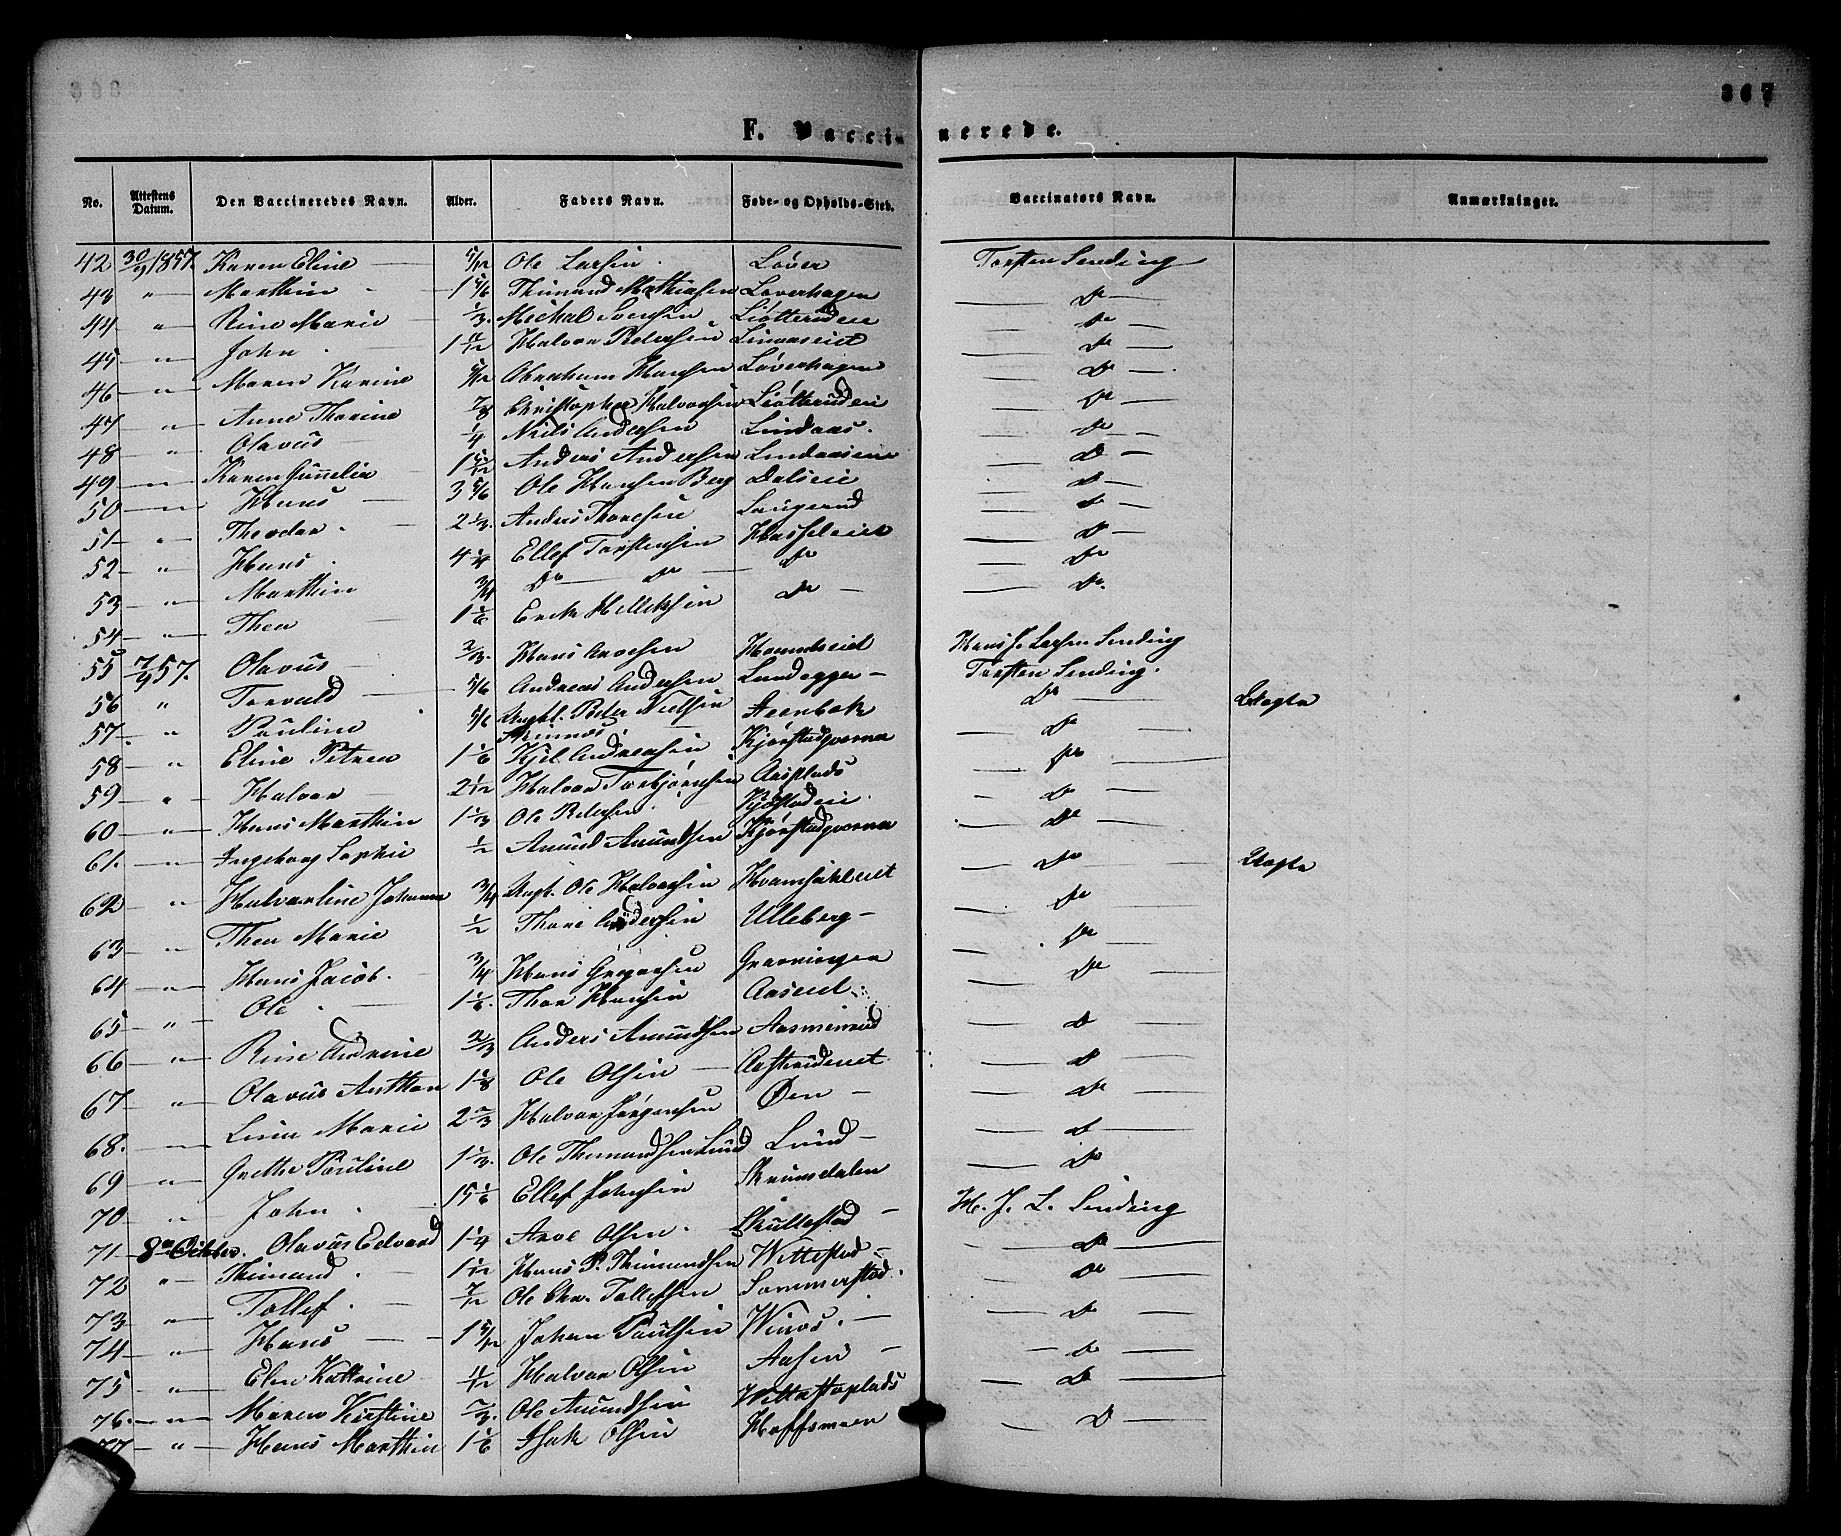 367
F. Vaccinerede.
No. Attestens Datum. Den Vaccineredes Navn. Alder. Faders Navn. Føde- og Opholds-Sted. Vaccinators Navn. Anmærkninger.
42 30/9 1857. Karen Eline 5/12 Ole Larsen Løver Torsten Sending
43 " Marthin 1 5/6 Thimand Mathiasen Løverhagen Do
44 " Rine Marie 1/3. Michal Svensen Do
45 " John 1 11/12 Halvor Pedersen Linaaseiet Do
46 " Maren Karine 5/12 Abraham Hansen Løverhagen Do
47 " Anne Thorine 7/8 Christopher Halvorsen Do
48 " Olavus 1/4 Niels Andersen Lindaas. Do
49 " Karen Gunelia 1 5/12 Anders Andersen Lindaaseie Do
50 " Hans 3 5/6 Ole Hansen Berg Dalseie Do
51 " Theodor 2 1/3. Anders Thoresen Langerud Do
52 " Hans 4 1/4 Ellef Torstensen Hasseleiet Do
53 " Marthin 3/4 Do Do Do Do
54 " Thea 1 1/6 Erik Hellesen Do Do
55 7/9 57. Olavus 2/3. Hans Aroesen Hvambseiet Hans J. Larsen Sending
56 " Torvald 5/6 Andreas Andersen Lundegger Torsten Sending.
57. " Pauline 5/6 Ungkl. Peder Nielsen Steenbok Do Uægte
58 " Eline Petrea 1 1/6 Kjel Andreasen Do
59 " Halvor 2 1/12 Halvor Torbjørnsen Aasplads Do
60 " Hans Marthin 1 1/3 Ole Pedersen Do
61. " Ingeborg Sophie 1/2 Amund Amundsen Do
62 " Halvorline Johanne 3/4 Ungk. Ole Halvorsen Do Uægte
63 " Thea Marie 1/2 Thore Andersen Ulleberg Do
64 " Hans Jacob. 3/4 Hans Gregersen Do
65 " Ole 1 1/6. Thor Hansen Aaseiet Do
66 " Rine Andrine 2/3 Anders Amundsen Aasmunrud Do
67 " Olavus Antton 1 1/8 Ole Olsen Do
68. " Lina Marie 2 2/3 Halvor Jørgensen Øen Do
69 " Grethe Pauline 1 1/3. Ole Thomandsen Lund Lund Do
70 " John 15 1/6 Ellef Johnsen Skrumsdalen Do
71 8de Octbr. Olavus Edvard 1 1/4 Aroe Olsen. Skullestad H. J. L. Sending
72 " Thimand 1 1/12 Hans P. Thimandsen Wittestad Do
73 " Tollef. 7/12 Ole Chr. Tollefsen Sommerstad. Do
74 " Hans 1 5/12 Johan Paulsen Do
75 " Elen Kathrine 11/12 Halvor Olsen Aasen Do
76. " Maren Kirstine 2/3. Ole Amundsen Wittestaplads Do
77 " Hans Marthin 1 1/6 Isak Olsen Hoffsmoen Do